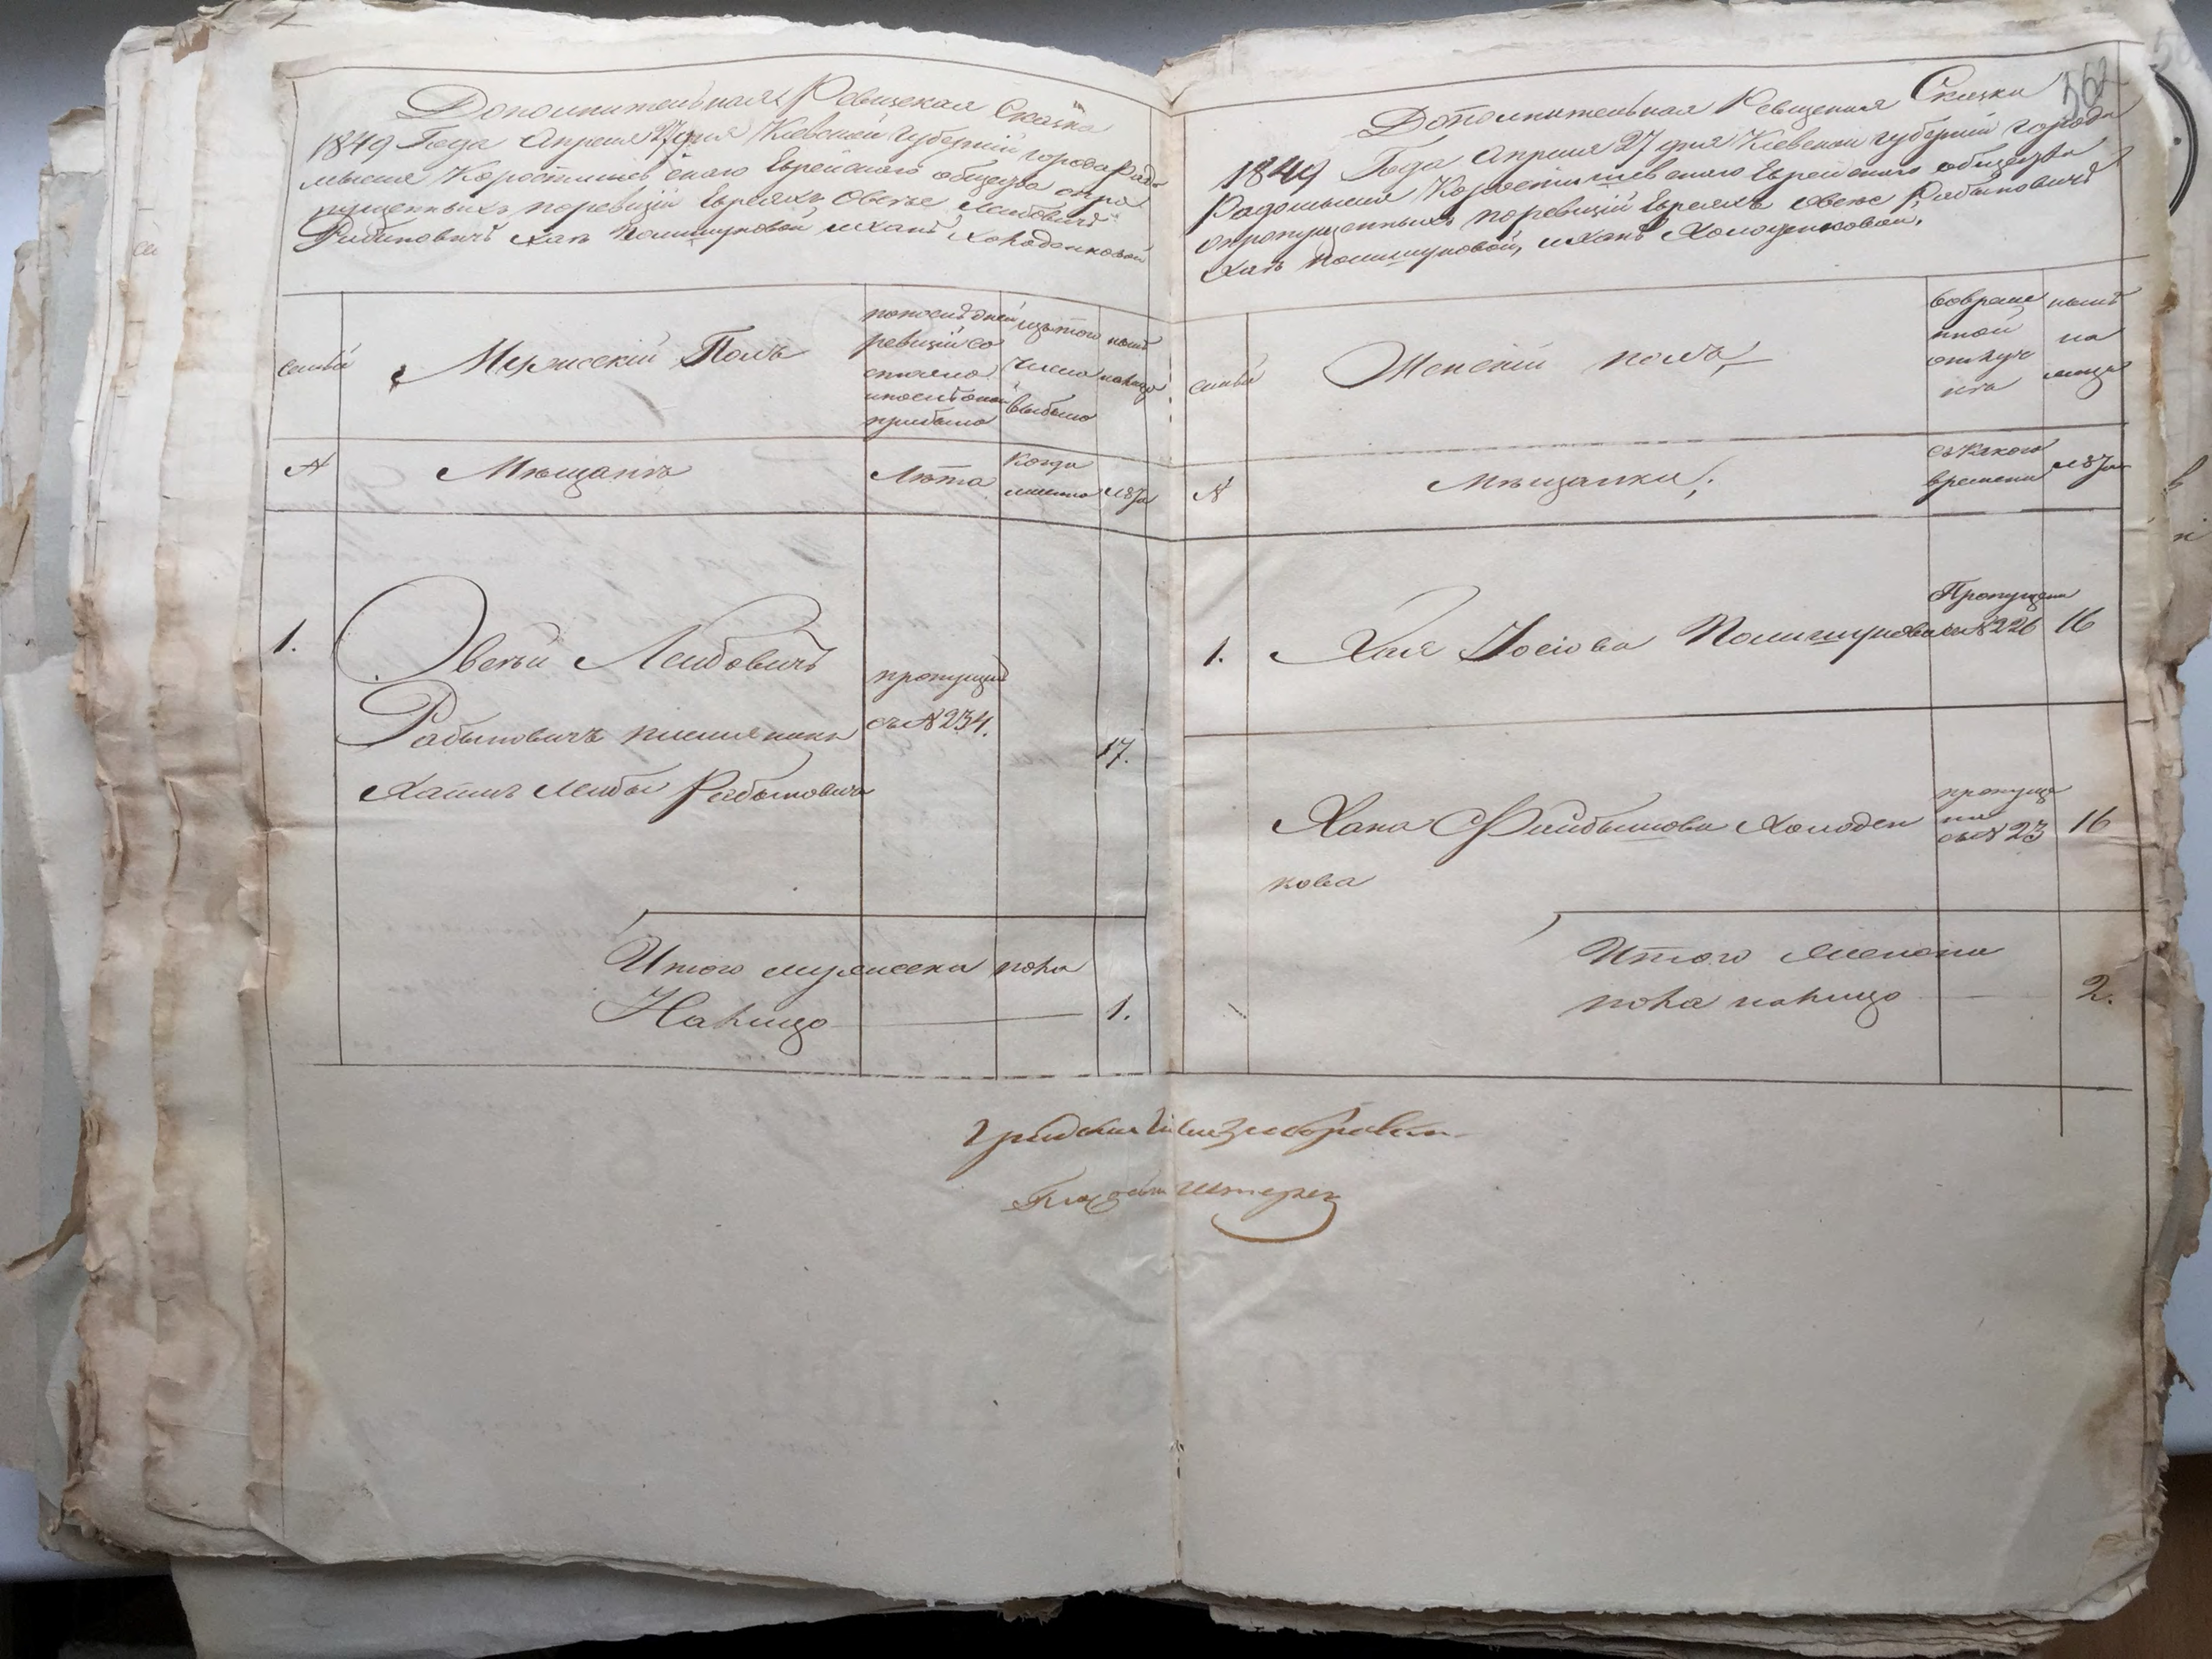 Дополнительная Ревизская Сказка
1849 Года Апреля 27 дня Кіевской Губерніи города Радо
мысля Коростишевскаго Еврейского общества о про
пущенныхъ поревизіи Евреяхъ Овсеѣ Лейбовичѣ
Рабиновичѣ Хаѣ Полищуковой иханѣ Холоденковой
семьи
Мужескій Полъ
попослѣдней
ревизіи со
стояло
ипослѣ оной
прибыло
изътого
числа
выбыло
нынѣ
налицо
№
Мѣщанъ
Лѣта
Когда
именно
1.
Овсѣй Лейбовичъ
Рабыновичъ племянникъ
Хаима Лейбы Рабыновича
пропущенъ
съ № 234.
17.
Итого мужеска пола
Налицо
1.
562
Дополнительная Ревизская Сказка
1849 Года Апреля 27 дня Кіевской Губерніи города
Радомысля Коростишевского Еврейского общества
опропущенныхъ поревизіи Евреяхъ Овсеѣ Рабыновичѣ
Хаѣ Полищуковой, иханѣ Холоденковой.
семьи
Женскій полъ
вовреме
нной
отлуч
кѣ
нынѣ
на
лицо
№
мѣщанки;
съкакого
времени
1.
Хая Іосіова Полищукова
Пропущена
№ 226
16
Хана Файбышова Холоден
кова
пропуще
на
съ № 23
16
Итого женска
пола налицо
2.